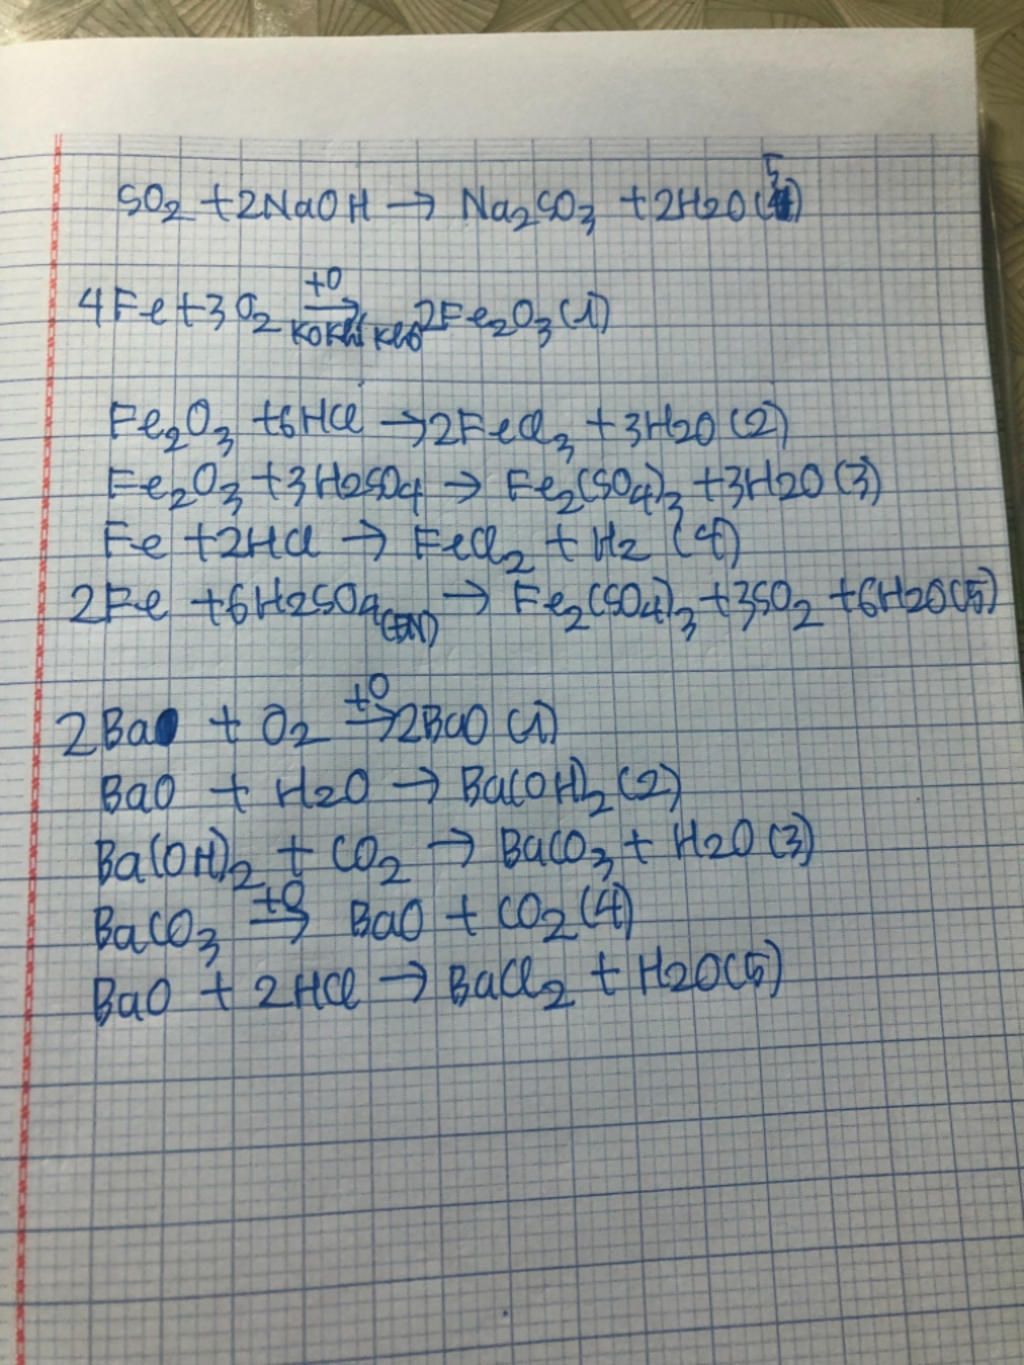 SO2 + 2NaOH → Na2SO3 + 2H2O (5)
4Fe + 3O2 +O → 2Fe2O3 (1)
Fe2O3 + 6HCl → 2FeCl3 + 3H2O (2)
Fe2O3 + 3H2SO4 → Fe2(SO4)3 + 3H2O (3)
Fe + 2HCl → FeCl2 + H2 (4)
2Fe + 6H2SO4 → Fe2(SO4)3 + 3SO2 + 6H2O (5)
2Ba + O2 +O → 2BaO (1)
BaO + H2O → Ba(OH)2 (2)
Ba(OH)2 + CO2 → BaCO3 + H2O (3)
BaCO3 +O → BaO + CO2 (4)
BaO + 2HCl → BaCl2 + H2O (5)